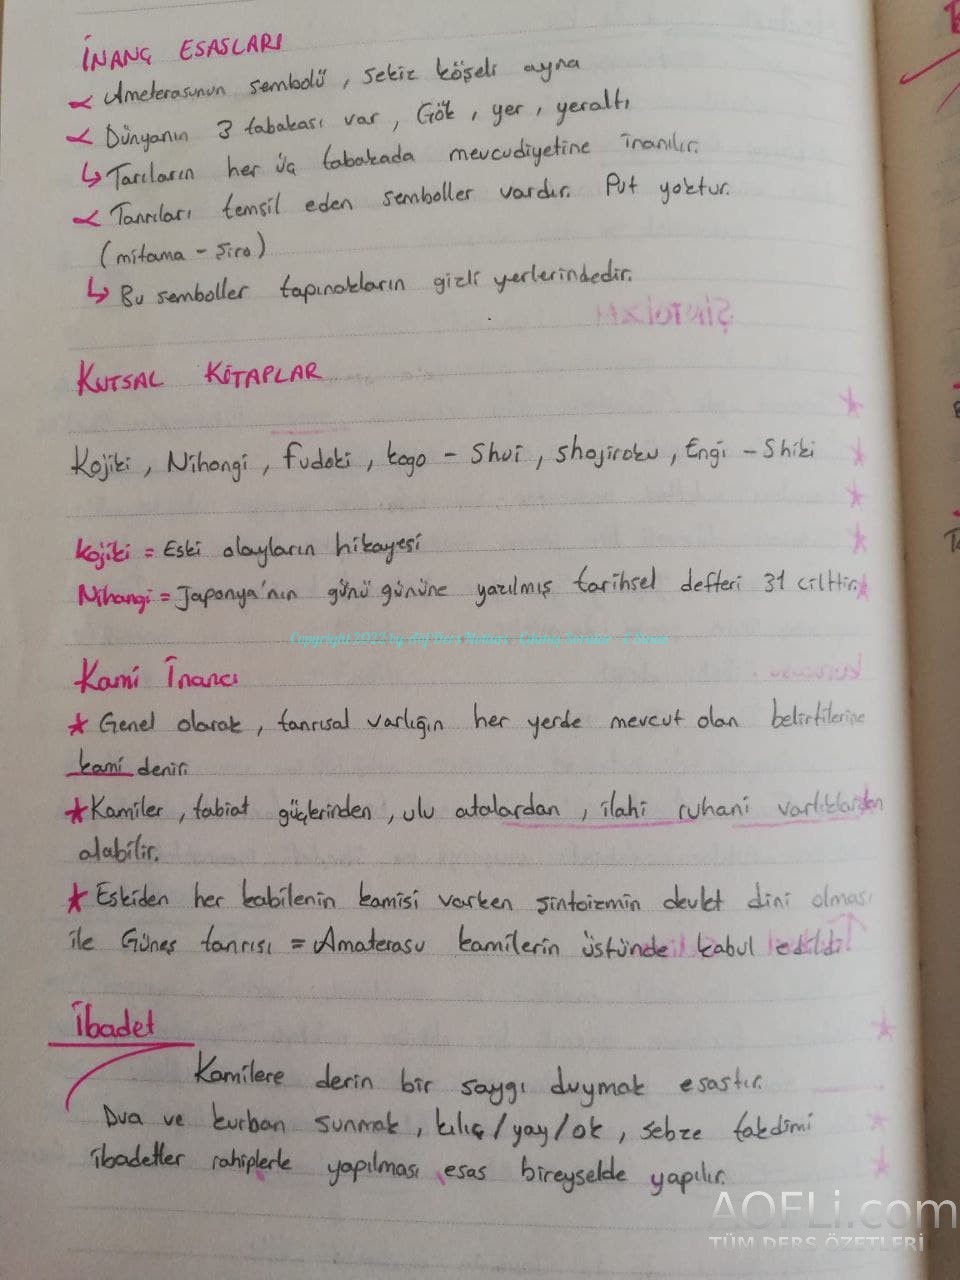 İNANÇ ESASLARI
Ameterasunun sembolü, sekiz köşeli ayna
Dünyanın 3 tabakası var, Gök, yer, yeraltı
↳ Tarıların her üç tabakada mevcudiyetine inanılır.
Tanrıları temsil eden semboller vardır. Put yoktur.
(mitama - şiro)
↳ Bu semboller tapınakların gizli yerlerindedir.
KUTSAL KİTAPLAR
Kojiki, Nihongi, fudoki, kogo - Shui, shojiroku, Engi - Shiki
Kojiki = Eski olayların hikayesi
Nihangi = Japonya'nın günü gününe yazılmış tarihsel defteri 31 cilttir.
Kami İnancı
★ Genel olarak, tanrısal varlığın her yerde mevcut olan belirtilerine
kami denir.
★ Kamiler, tabiat güçlerinden, ulu atalardan, ilahi ruhani varlıklardan
olabilir.
★ Eskiden her kabilenin kamisi varken şintoizmin devlet dini olması
ile Güneş tanrısı = Amaterasu kamilerin üstünde kabul edildi
İbadet
Kamilere derin bir saygı duymak esastır.
Dua ve kurban sunmak, kılıç/yay/ok, sebze takdimi
ibadetler rahiplerle yapılması esas bireyselde yapılır.
AOFLi.com
TÜM DERS ÖZETLERİ